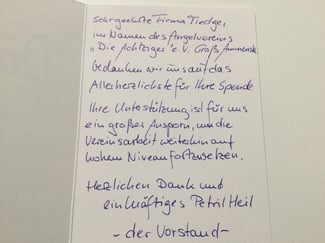 Sehr geehrte Firma Tiedge,
im Namen des Angelvereins
„Die Achtziger" e.V. Groß
bedanken wir uns auf das
Allerherzlichste für Ihre Spende.
Ihre Unterstützung ist für uns
ein großer Ansporn, um die
Vereinsarbeit weiterhin auf
hohem Niveau fortzusetzen.
Herzlichen Dank und
ein kräftiges Petri Heil
- der Vorstand -